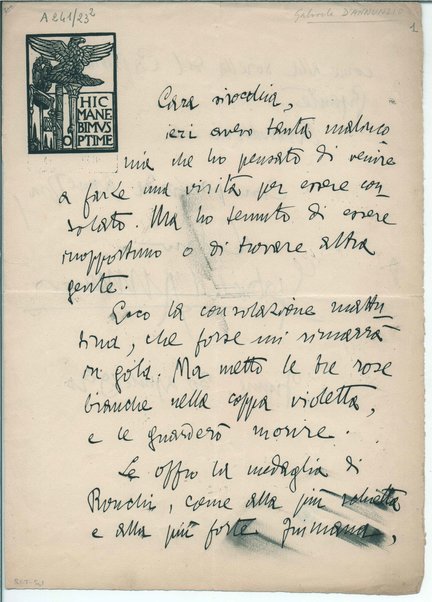 A241/23²
Gabriele D'ANNUNZIO
1
HIC
MANE
BIMVS
OPTIME
Cara sirocchia,
ieri avevo tanta malinco
nia che ho pensato di venire
a farLe una visita per essere con
solato. Ma ho temuto di essere
inopportuno o di trovare altra
gente.
Ecco la consolazione mattu
tina, che forse mi rimarrà
in gola. Ma metto le tre rose
bianche nella coppa violetta,
e le guarderò morire.
Le offro la medaglia di
Ronchi, come alla più schietta
e alla più forte fiumana,